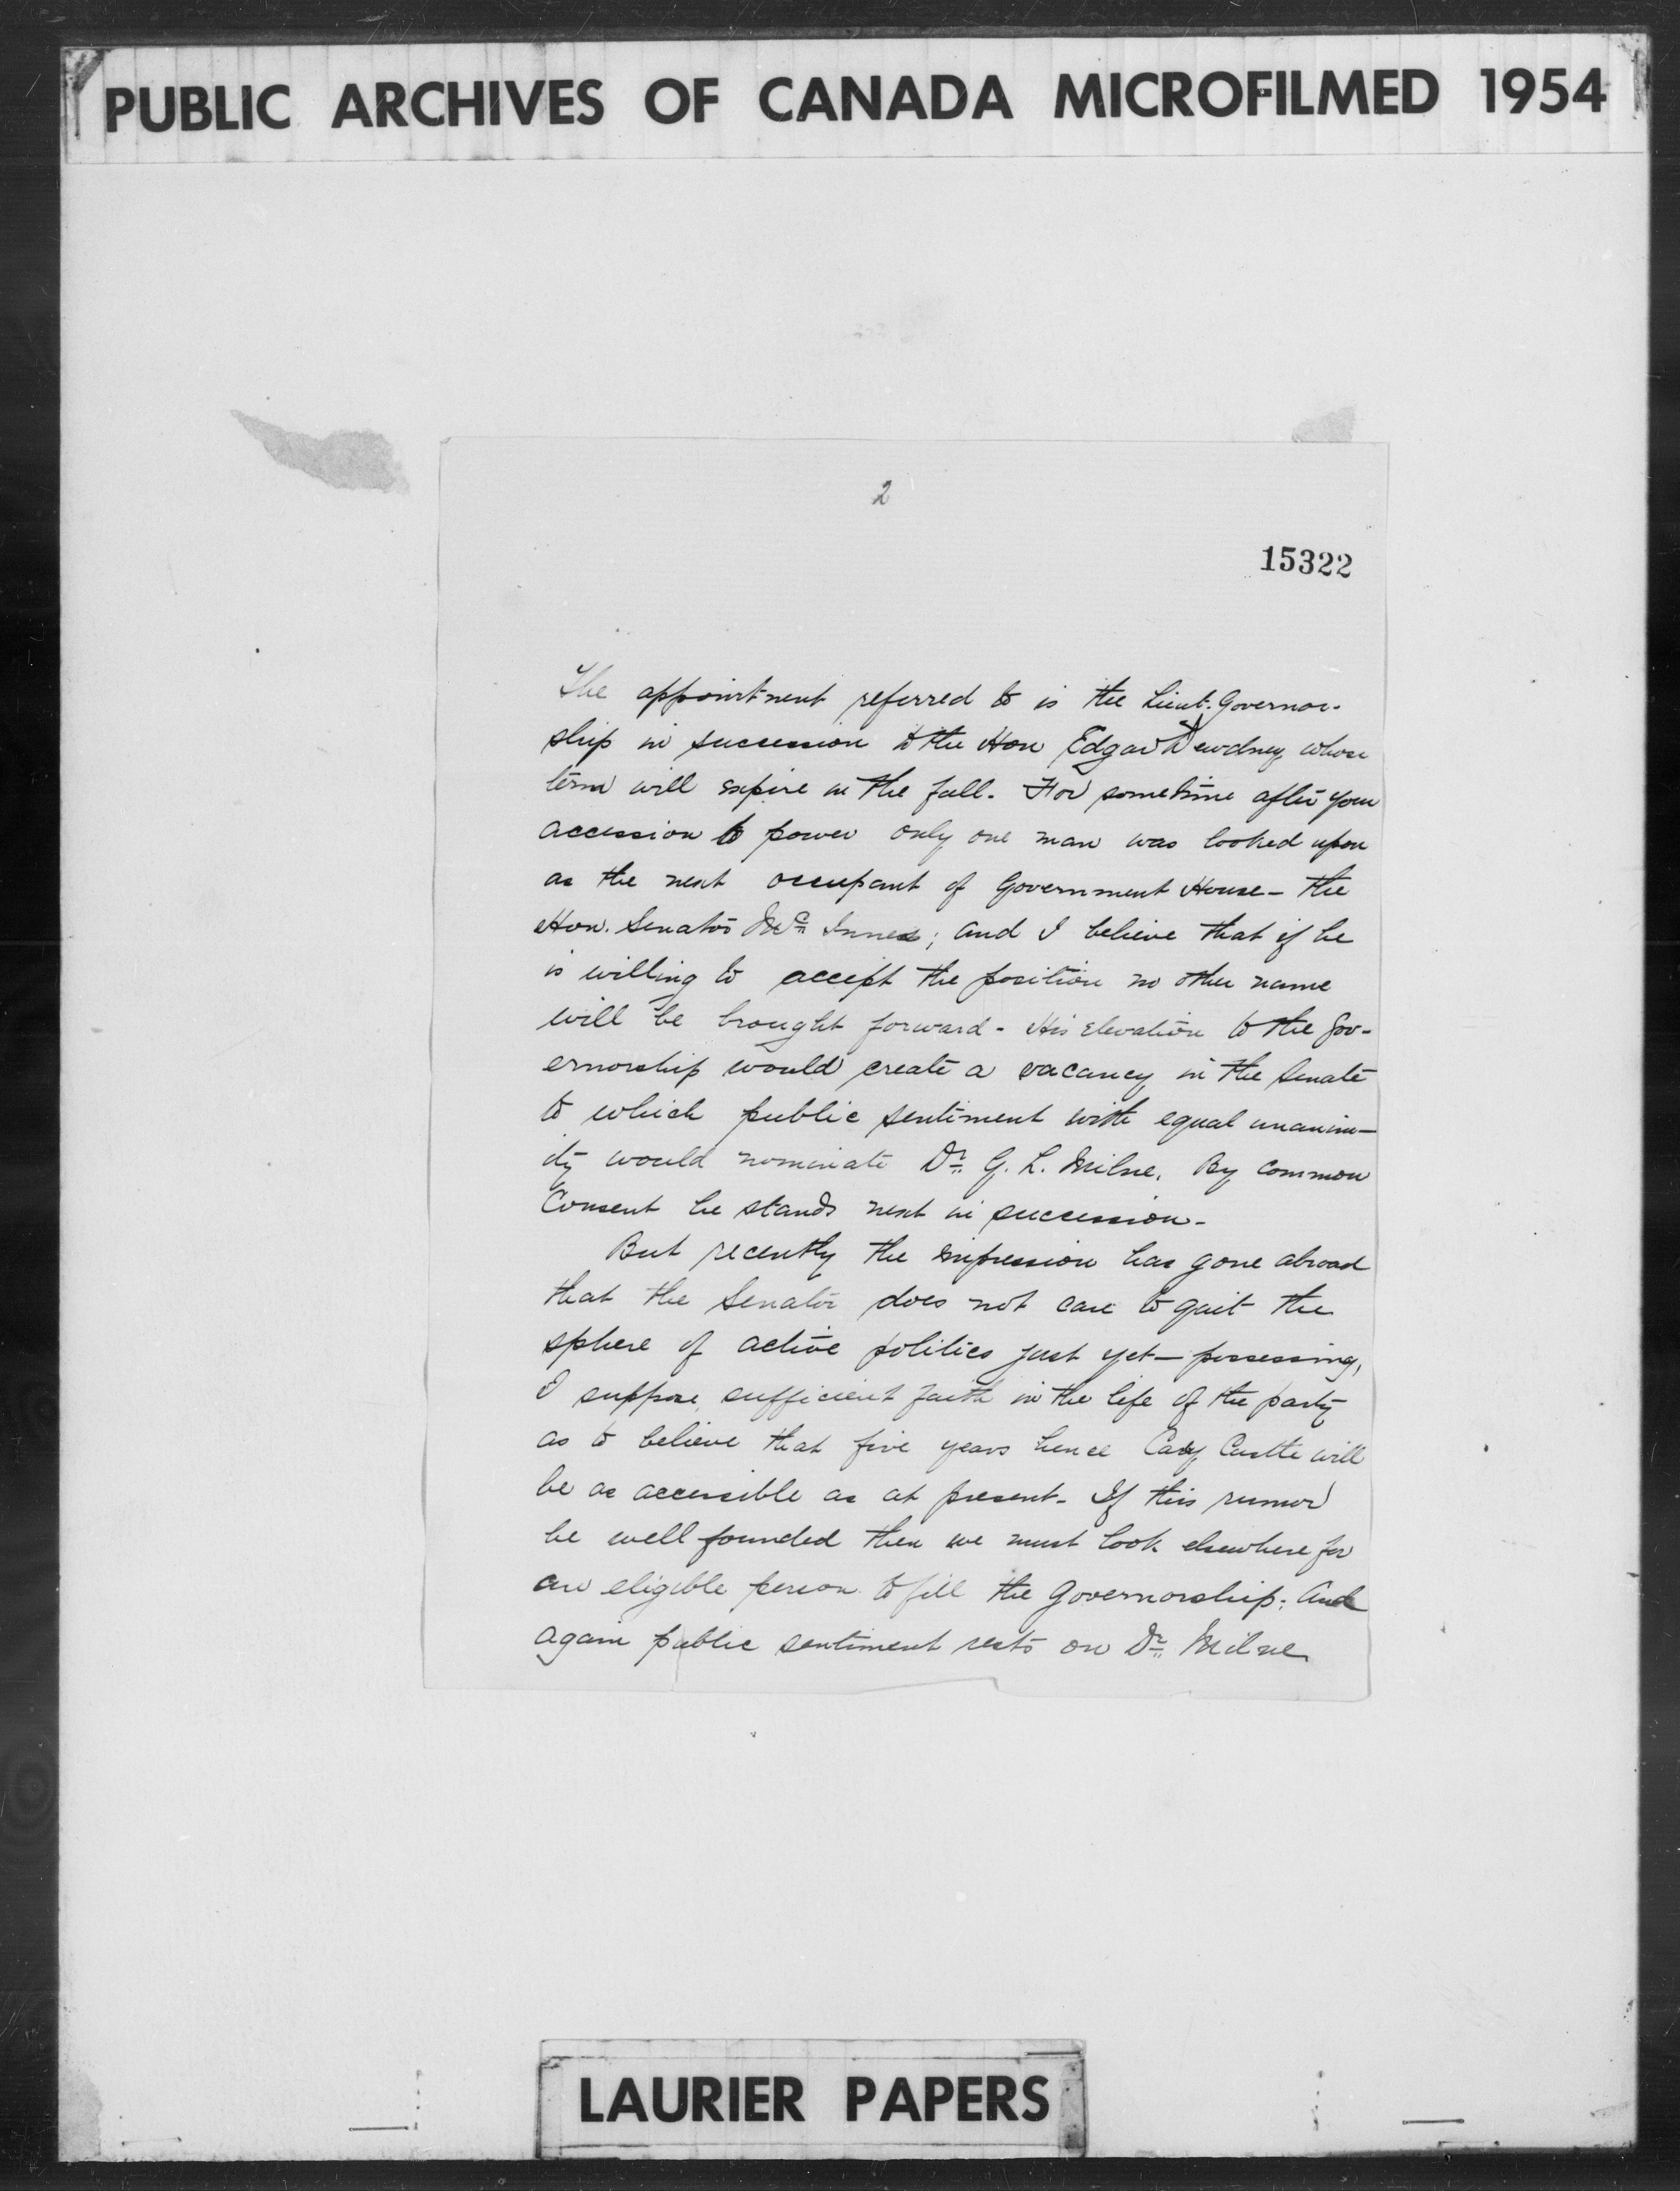 PUBLIC ARCHIVES OF CANADA MICROFILMED 1954
2
15322
The appointment referred to is the Lieut. Governor-
ship in succession to the Hon Edgar Dewdney, whose
term will expire in the fall. For sometime after your
accession to power only one man was looked upon
as the next occupant of Government House - the
Hon. Senator McInnes; and I believe that if he
is willing to accept the position no other name
will be brought forward. His elevation to the Gov-
ernorship would create a vacancy in the Senate
to which public sentiment with equal unanim-
ity would nominate Dr. G. L. Milne. By common
Consent he stands next in succession.
But recently the impression has gone abroad
that the Senator does not care to quit the
sphere of active politics just yet - possessing,
I suppose, sufficient faith in the life of the party
as to believe that five years hence Cary Castle will
be as accessible as at present. If this rumor
be well founded then we must look elsewhere for
an eligible person to fill the Governorship; And
again public sentiment rests on Dr. Milne
LAURIER PAPERS